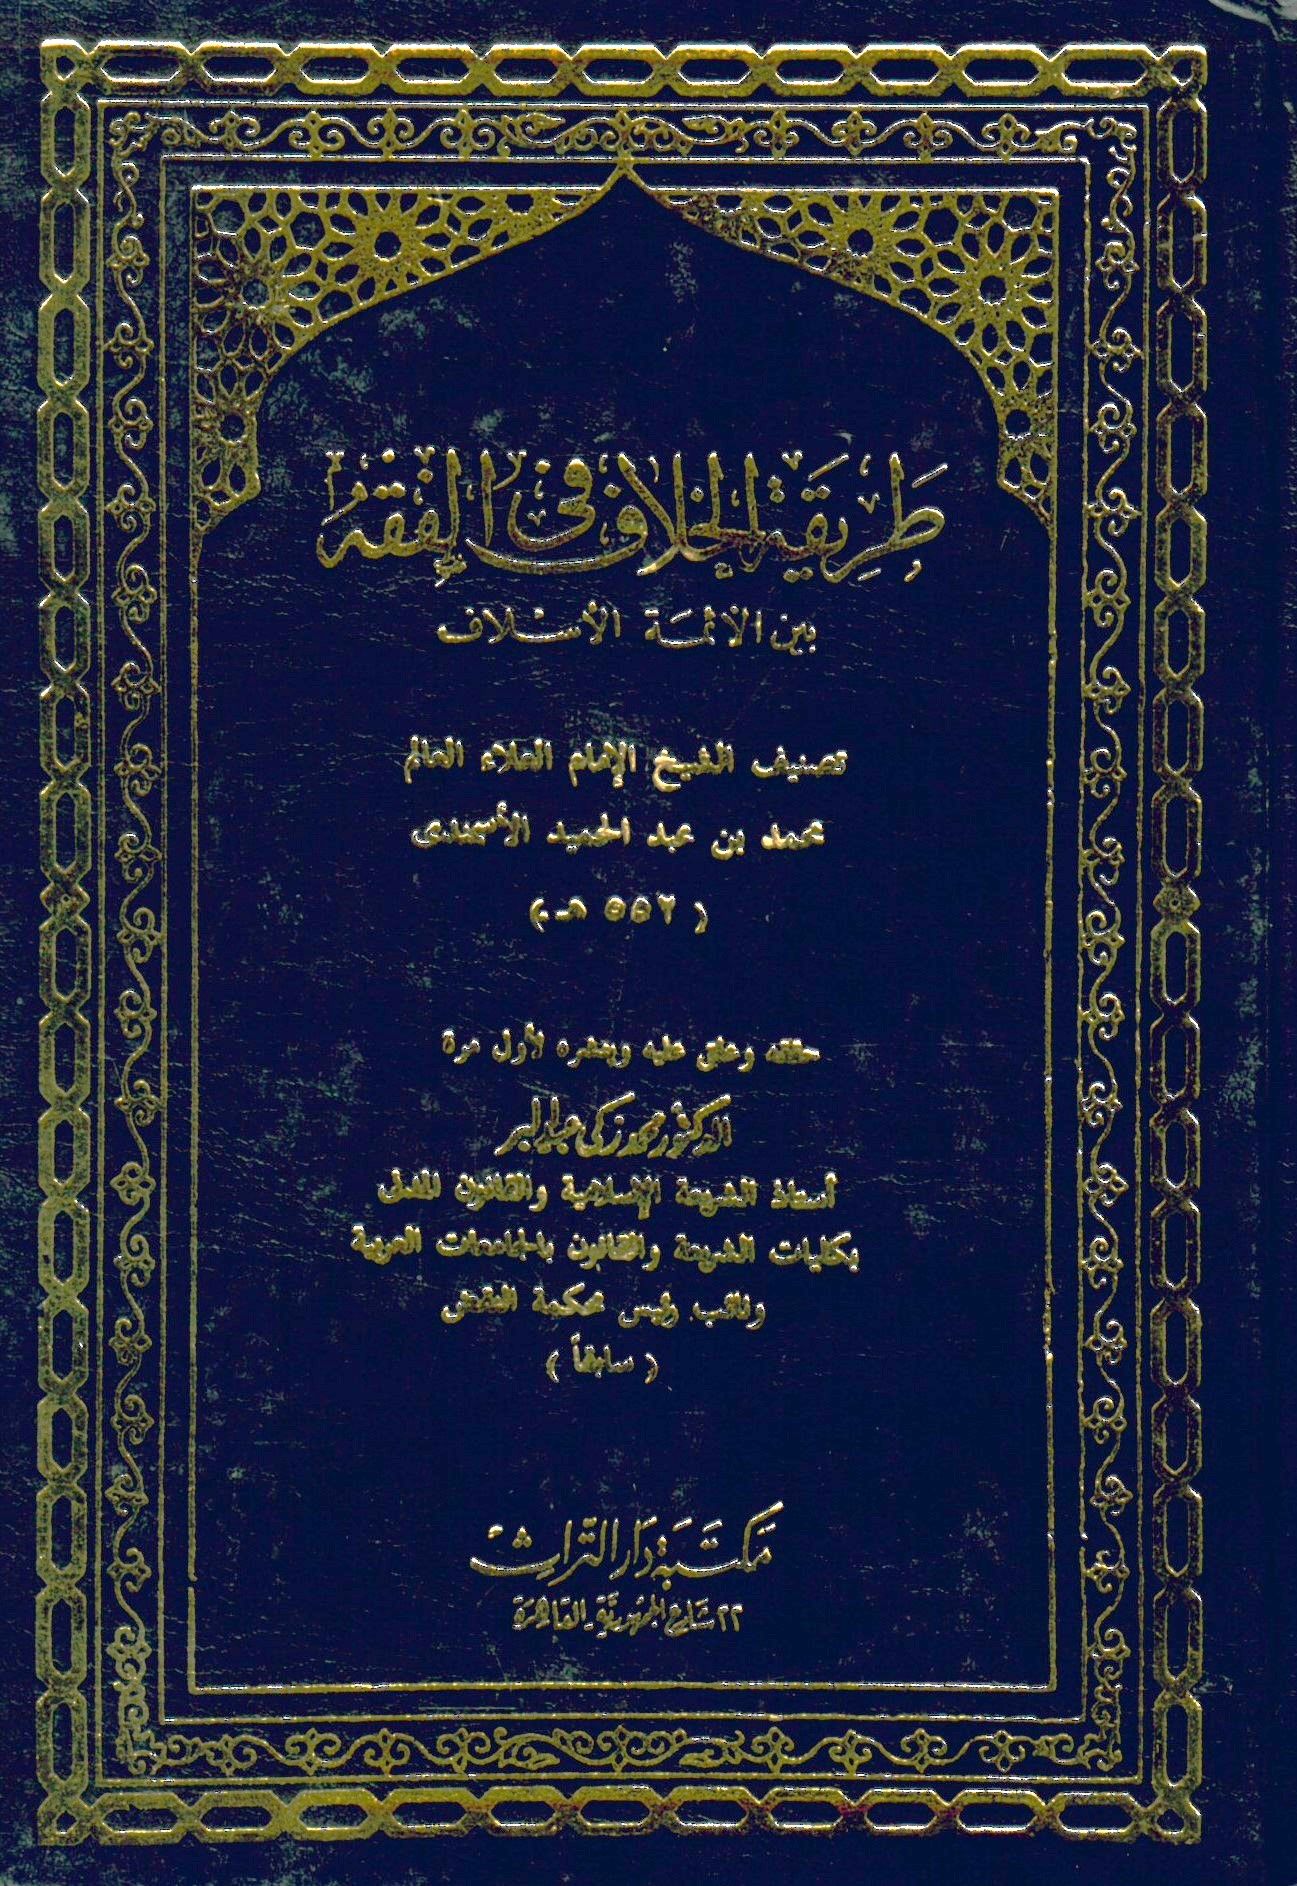 طَرِيقَةُ الخِلَافِ فِى الفِقْهِ
بين الأئمة الأسلاف
تصنيف الشيخ الإمام العلاء العالم
محمد بن عبد الحميد الأسمندى
( ٥٥٢ هـ )
حققه وعلق عليه وينشره لأول مرة
الدكتور محمد زكى عبد البر
أستاذ الشريعة الإسلامية والقانون المدنى
بكليات الشريعة والقانون بالجامعات العربية
ونائب رئيس محكمة النقض
( سابقاً )
مَكتَبَة دَار التّراث
٢٢ شَارع الجمهوريّة - القاهرة